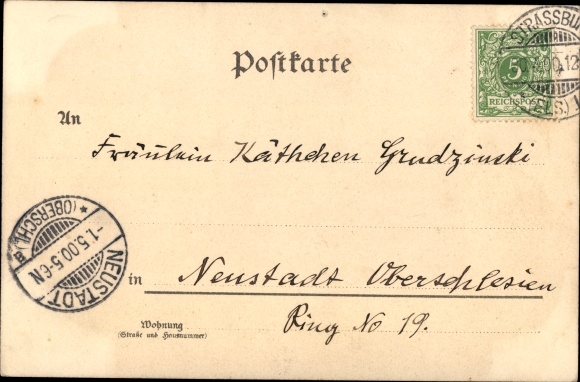 Postkarte
STRASSBU
5
REICHSPOST
(ELS.) 1
An
Fräulein Käthchen Grudzinski
NEUSTADT
* (OBERSCHL.) B
-1.5.00.5-6N
in Neustadt Oberschlesien
Ring No 19.
Wohnung
(Straße und Hausnummer)